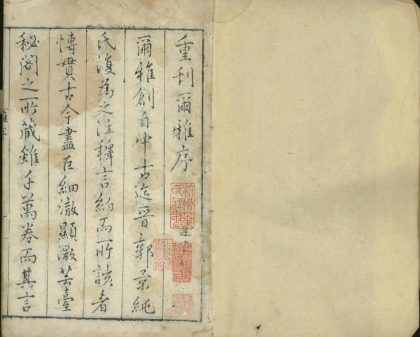 重刊爾雅序
爾雅創自中古迄晉郭景純
氏復為之注釋言約而所該者
博貫古今盡巨細澈顯微芸臺
秘閣之所藏雖千萬卷而其言